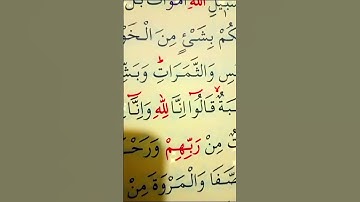 سَبٖيلِ اللّٰهِ اَمْوَاتٌ بَلْ
كُمْ بِشَيْءٍ مِنَ الْخَوْ
سِ وَالثَّمَرَاتِۜ وَبَشِّ
بَةٌۙ قَالُٓوا اِنَّا لِلّٰهِ وَاِنَّٓا
تٌ مِنْ رَبِّهِمْ وَرَحْمَ
صَّفَا وَالْمَرْوَةَ مِنْ